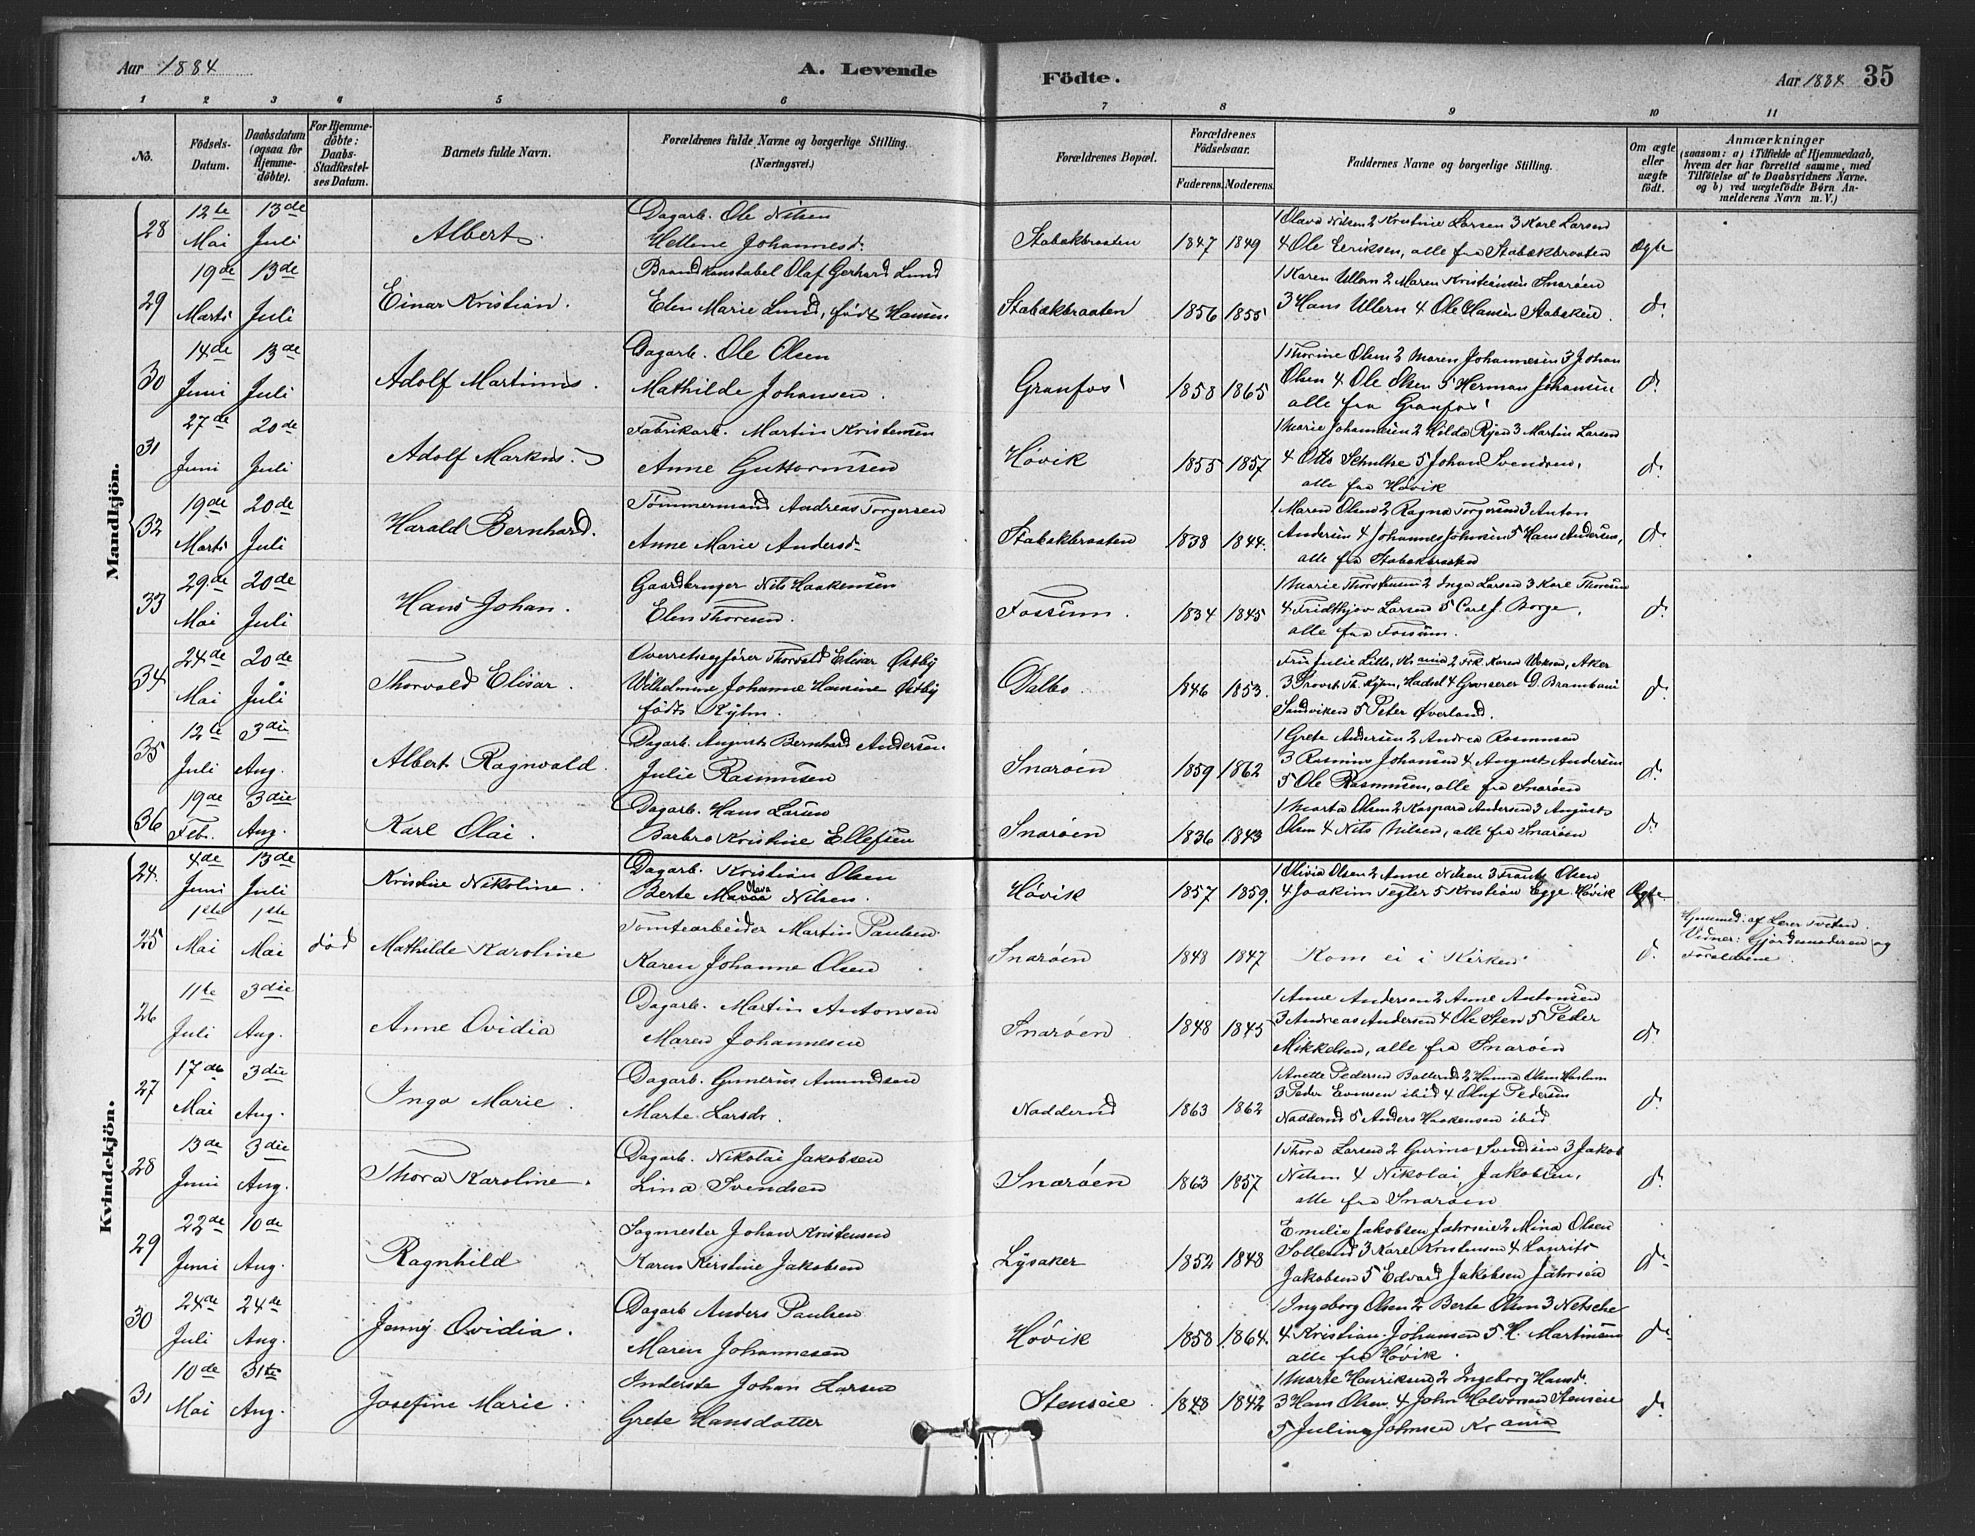 Aar 1884
A. Levende
Födte.
Aar 1884 35
1 2 3 4 5 6 7 8 9 10 11
No.
Födsels-Datum.
Daabsdatum (ogsaa for Hjemmedöbte).
For Hjemmedöbte: Daabs-Stadfæstelses Datum.
Barnets fulde Navn.
Forældrenes fulde Navne og borgerlige Stilling. (Næringsvei.)
Forældrenes Bopæl.
Forældrenes Födselsaar.
Faderens. Moderens.
Faddernes Navne og borgerlige Stilling.
Om ægte eller uægte födt.
Anmærkninger
(saasom: a) i Tilfælde af Hjemmedaab, hvem der har forrettet samme, med Tilföielse af to Daabsvidners Navne. og b) ved uægtefödte Börn Anmelderens Navn m. V.)
Mandkjön.
28 12te Mai 13de Juli Albert. Dagarb. Ole Nilsen
Hellene Johannesd. Stabækbraaten 1847 1849 1 Olava Nilsen 2 Kristine Larsen 3 Karl Larsen
4 Ole Eeriksen, alle fra Stabækbraaten ægte
29 19de Marts 13de Juli Einar Kristian. Brandkonstabel Olaf Gerhard Lund
Elen Marie Lund, født Hansen. Stabækbraaten 1856 1855 1 Karen Ullern 2 Maren Kristiansen Snarøen
3 Hans Ullern 4 Ole Hansen Stabæken. d.
30 14de Juni 13de Juli Adolf Martinus. Dagarb. Ole Olsen
Mathilde Johansen. Granfos 1858 1865 1 Thorine Olsen 2 Maren Johannesen 3 Johan
Olsen 4 Ole Olsen 5 Herman Johansen
alle fra Granfos d.
31 27de Juni 20de Juli Adolf Markus. Fabrikarb. Martin Kristensen
Anne Guttormsen Høvik 1855 1857 1 Marie Johannesen 2 Hilda Ryen 3 Martin Larsen
4 Otto Schultze 5 Johan Svendsen,
alle fra Høvik d.
32 19de Marts 20de Juli Harald Bernhard. Tømmermand Andreas Torgersen
Anne Marie Andersd. Stabækbraaten 1838 1844. 1 Maren Olsen 2 Ragna Torgersen 3 Anton
Andersen 4 Johannes Johnsen 5 Hans Andersen,
alle fra Stabækbraaten d.
33 29de Mai 20de Juli Hans Johan. Gaardbruger Nils Haakensen
Elen Thoresen. Fossum. 1834 1845 1 Marie Thorstensen 2 Inga Larsen 3 Karl Thoresen
4 Fridthjov Larsen 5 Carl J. Borge,
alle fra Fossum. d.
34 24de Mai 20de Juli Thorvald Elisar. Overretssagfører Thorvald Elisar Østby
Wilhelmine Johanne Hansine Østby
født Kyhn. Dalbo. 1846 1853. Fru Julie Kr.ania 2 Frk. Karen Aker
3 Provst Th. Kyhn, Hadsel 4 Grosserer D. Brambani
Sandviken 5 Peter Øverland. d.
35 12te Juli 3die Aug. Albert Ragnvald. Dagarb. August Bernhard Andersen.
Julie Rasmussen Snarøen 1859 1862 1 Grete Andersen 2 Andrea Rasmussen
3 Rasmus Johansen 4 August Andersen
5 Ole Rasmussen, alle fra Snarøen d.
36 19de Feb. 3die Aug. Karl Olai. Dagarb. Hans Larsen
Barbro Kristine Ellefsen Snarøen 1836 1843 1 Marta Olsen 2 Kaspara Andersen 3 August
Olsen 4 Nils Nilsen, alle fra Snarøen d.
Kvindekjön.
24. 4de Juni 13de Juli Kristine Nikoline. Dagarb. Kristian Olsen
Berte Olava Nilsen. Høvik 1857 1859. 1 Olivia Olsen 2 Anne Nilsen 3 Frantz Olsen
4 Joakim Tegler 5 Kristian Egge. Høvik Ægte
25 1ste Mai 1ste Mai død Mathilde Karoline Tomtearbeider Martin Paulsen.
Karen Johanne Olsen Snarøen 1848 1847 Kom ei i Kirken d. Hjemmed. af Lærer Tveten.
Vidner: Gjordemoderen og
Forældrene.
26 11te Juli 3die Aug. Anne Ovidia Dagarb. Martin Antonsen
Maren Johannesen Snarøen 1848 1845 1 Anne Andersen 2 Anne Antonsen
3 Andreas Andersen 4 Ole Sten 5 Peder
Mikkelsen, alle fra Snarøen d.
27 17de Mai 3die Aug. Inga Marie. Dagarb. Gunerius Amundsen
Marte Larsdr. Nadderud 1863 1862 1 Anette Pedersen Ballerud 2 Hanna Olsen Haslum
3 Peder Evensen ibid 4 Oluf Pedersen
Nadderud 5 Anders Haakensen ibid. d.
28 13de Juni 3die Aug. Thora Karoline. Dagarb. Nikolai Jakobsen
Lina Svendsen Snarøen 1863 1857 1 Thora Larsen 2 Gurine Svendsen 3 Jakob
Nilsen 4 Nikolai Jakobsen,
alle fra Snarøen d.
29 22de Juni 10de Aug. Ragnhild Sagmester Johan Kristensen
Karen Kirstine Jakobsen Lysaker 1852 1848 Emilie Jakobsen Jahrseie 2 Mina Olsen
Sollerud 3 Karl Kristensen 4 Laurits
Jakobsen 5 Edvard Jakobsen Jahrseie d.
30 24de Juli 24de Aug. Jenny Ovidia. Dagarb Anders Paulsen
Maren Johannesen Høvik 1858 1864. 1 Ingeborg Olsen 2 Berte Olsen 3 Netsche
4 Kristian Johansen 5 H. Martinsen
alle fra Høvik. d.
31 10de Mai 31te Aug. Josefine Marie. Inderste Johan Larsen
Grete Hansdatter Stenseie. 1848 1842 1 Marte Henriksen 2 Ingeborg Hansd.
3 Hans Olsen 4 John Halvorsen Stenseie
5 Julius Johnsen Kr.ania d.